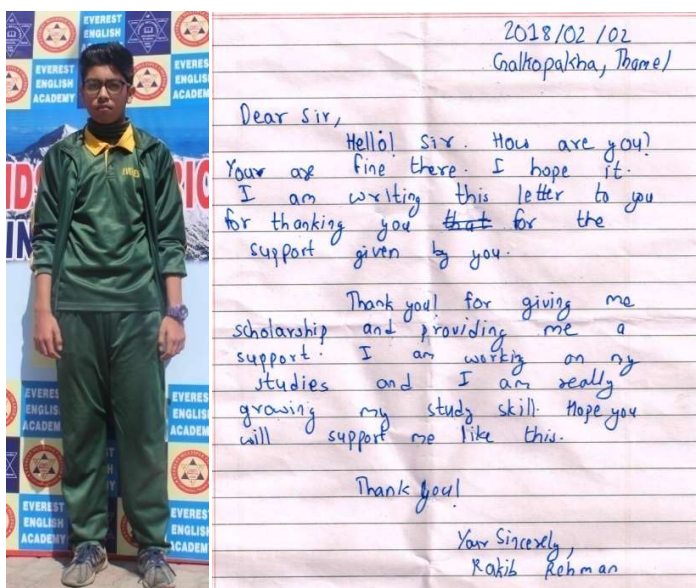 EVEREST
ENGLISH
ACADEMY
EVEREST
ENGLISH
ACADEMY
EVEREST
ENGLISH
ACADEMY
EVEREST
ENGLISH
ACADEMY
2018/02/02
Galkopakha, Thamel
Dear Sir,
Hello! Sir. How are you?
Your are fine there. I hope it.
I am writing this letter to you
for thanking you that for the
support given by you.
Thank you! for giving me
scholarship and providing me a
support. I am workig on my
studies and I am really
growing my study skill. Hope you
will support me like this.
Thank you!
Your Sincerely,
Rakib Rehman